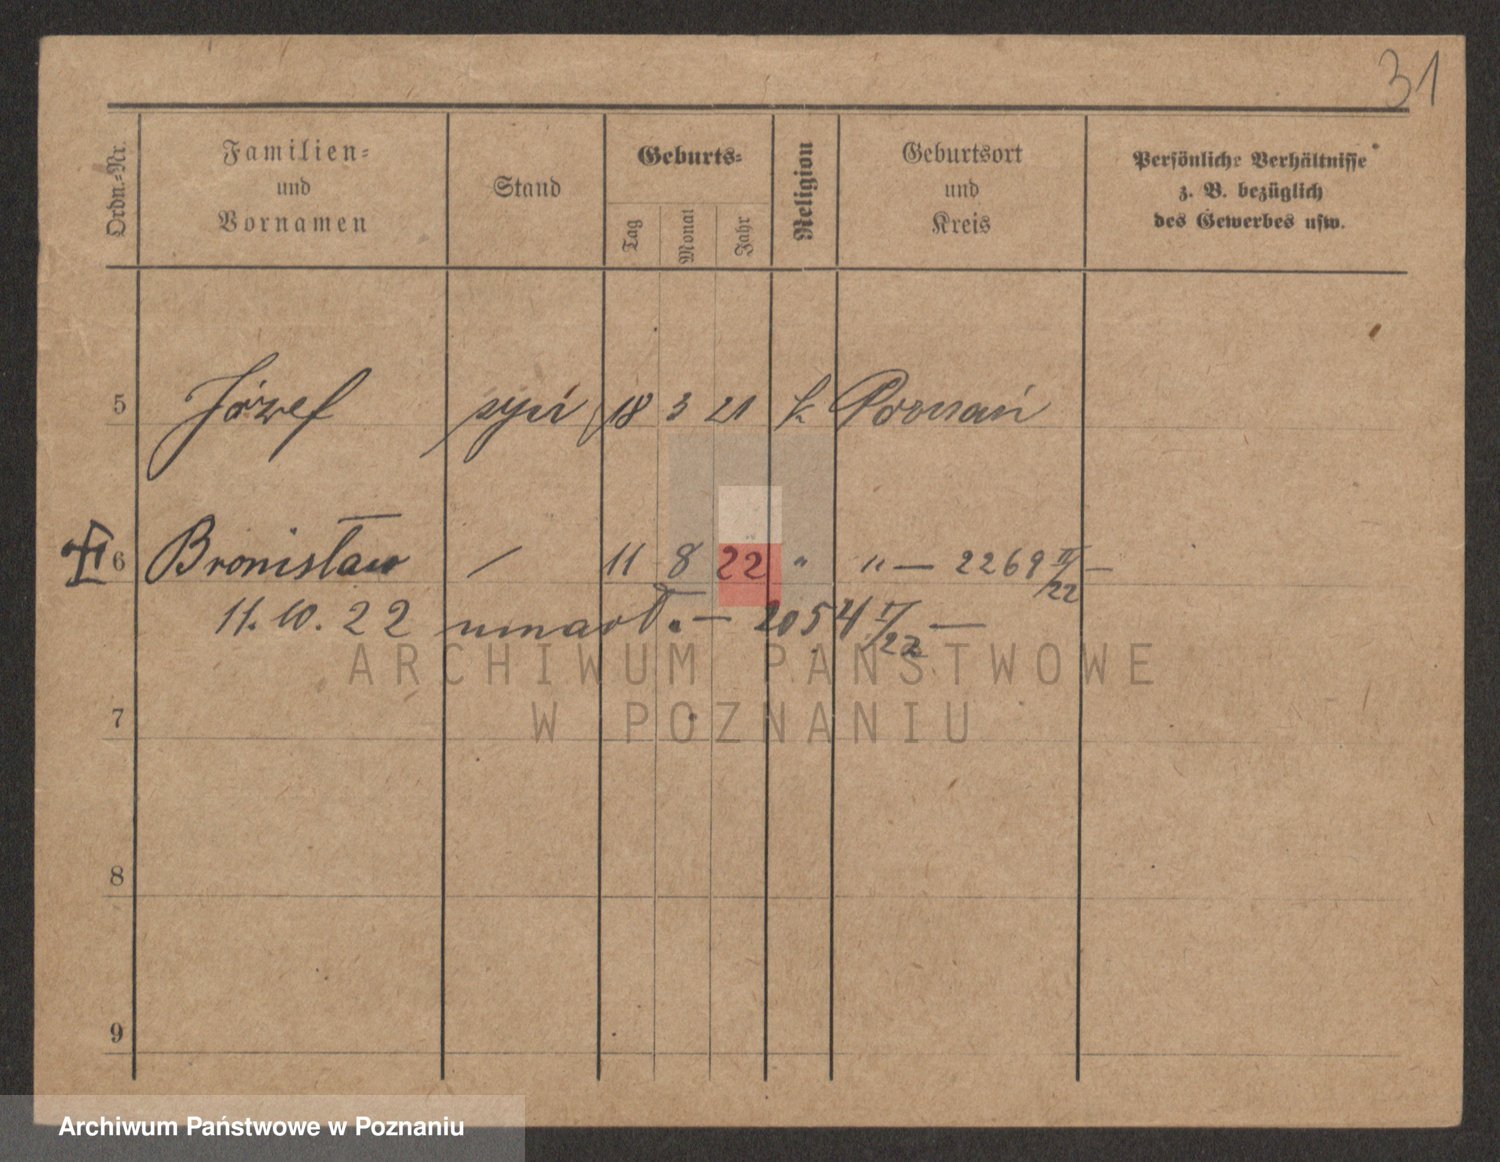 31
Ordn.-Nr.
Familien-
und
Vornamen
Stand
Geburts-
Tag
Monat
Jahr
Religion
Geburtsort
und
Kreis
Persönliche Verhältnisse
z. B. bezüglich
des Gewerbes usw.
5 Józef syn 18 3 21 k Poznań
6 Bronisław / 11 8 22 " " — 2269 II/22 —
11.10.22 umarł " — 2054 II/22 —
ARCHIWUM PAŃSTWOWE
W POZNANIU
7
8
9
Archiwum Państwowe w Poznaniu